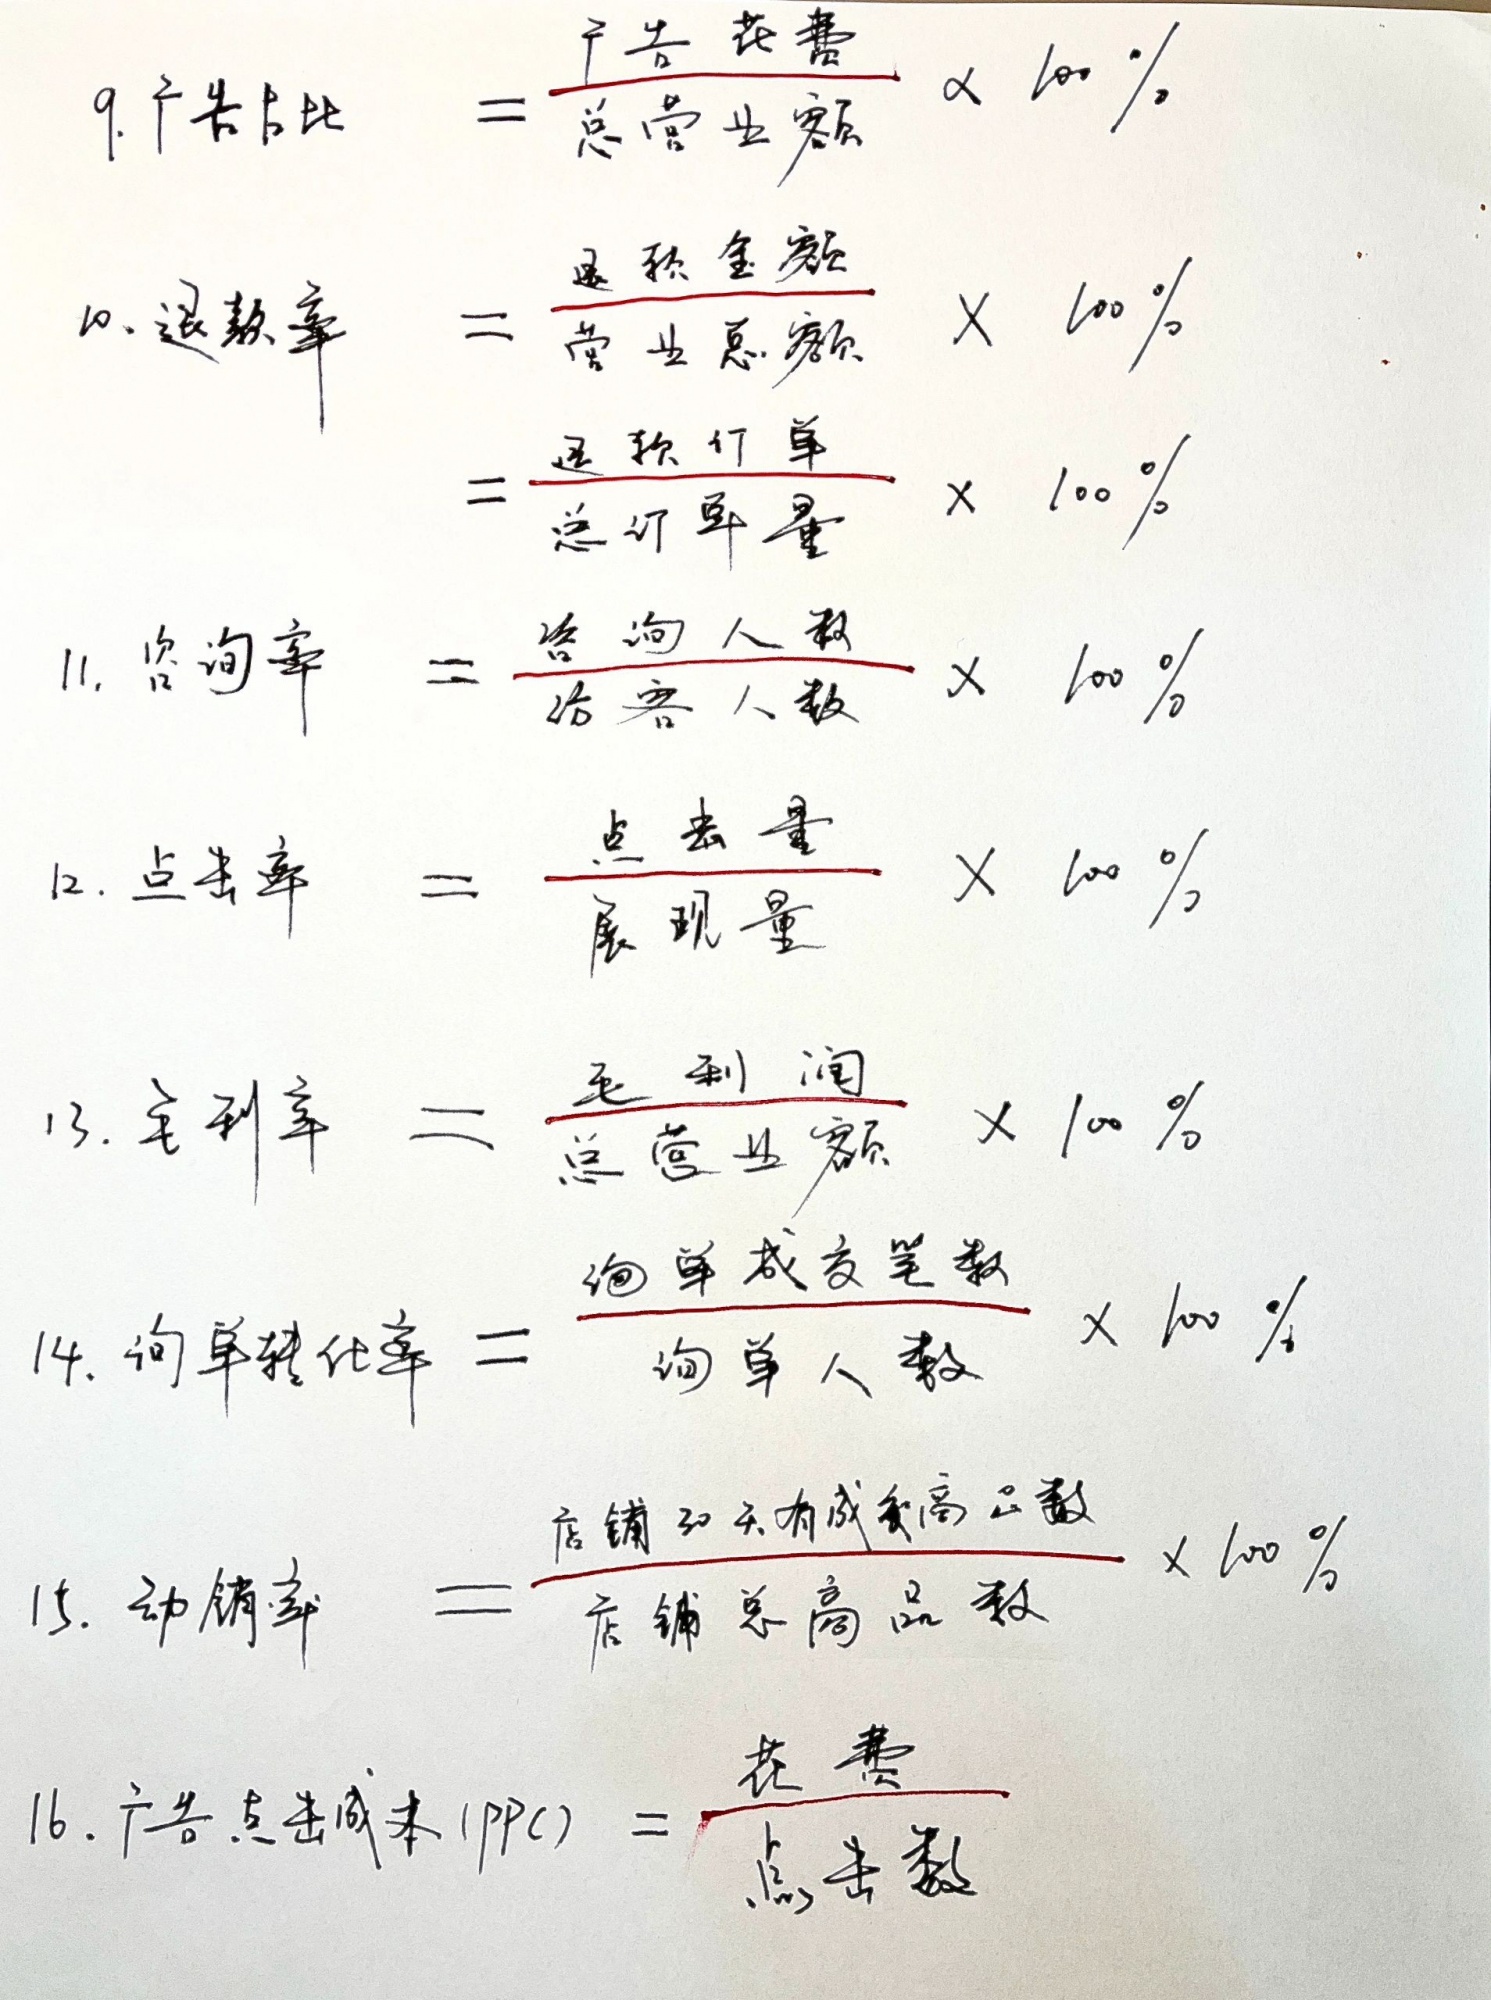 广告花费
9.广告占比 = ———— × 100%
总营业额
退款金额
10.退款率 = ———— × 100%
营业总额
退款订单
= ———— × 100%
总订单量
咨询人数
11.咨询率 = ———— × 100%
访客人数
点击量
12.点击率 = ———— × 100%
展现量
毛利润
13.毛利率 = ———— × 100%
总营业额
询单成交笔数
14.询单转化率 = ———— × 100%
询单人数
店铺30天有成交商品数
15.动销率 = ———— × 100%
店铺总商品数
花费
16.广告点击成本(PPC) = ————
点击数